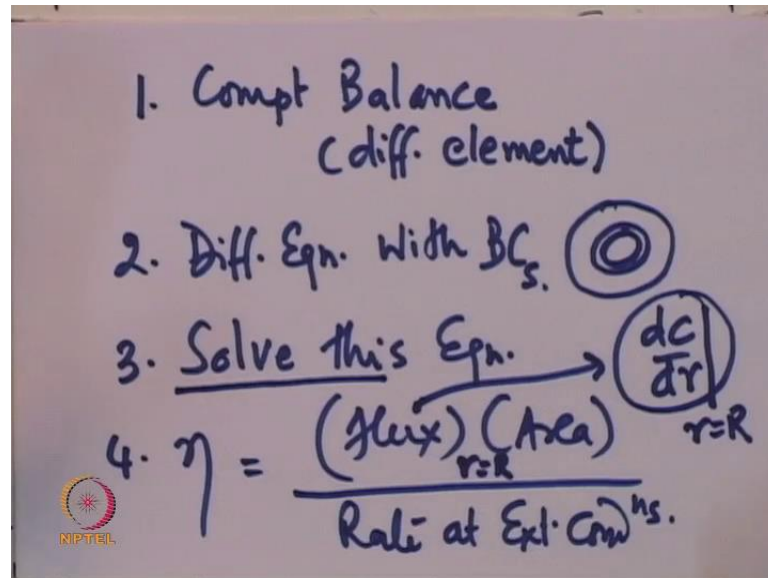 1. Compt Balance
(diff. element)
2. Diff. Eqn. With BCs.
3. Solve this Eqn.
dC/dr|r=R
4. η = (flux)r=R (Area)
Rate at Ext. Condns.
NPTEL